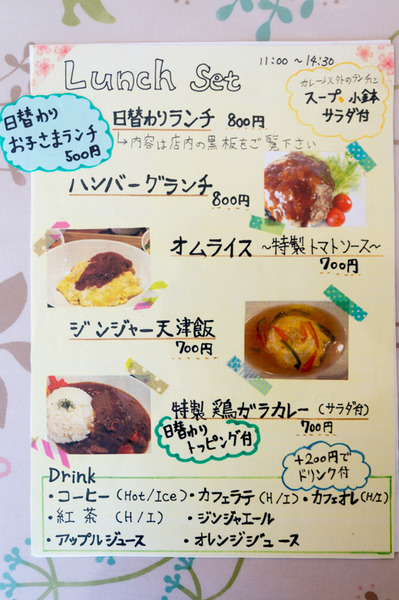 Lunch Set
11:00 ~ 14:30
カレー以外のランチに
スープ・小鉢
サラダ付
日替わり
お子さまランチ
500円
日替わりランチ 800円
↳内容は店内の黒板をご覧下さい
ハンバーグランチ
800円
オムライス ～特製トマトソース～
700円
ジンジャー天津飯
700円
特製 鶏ガラカレー (サラダ付)
700円
日替わり
トッピング付
+200円で
ドリンク付
Drink
・コーヒー (Hot/Ice) ・カフェラテ (H/I) ・カフェオレ (H/I)
・紅茶 (H/I) ・ジンジャエール
・アップルジュース ・オレンジジュース